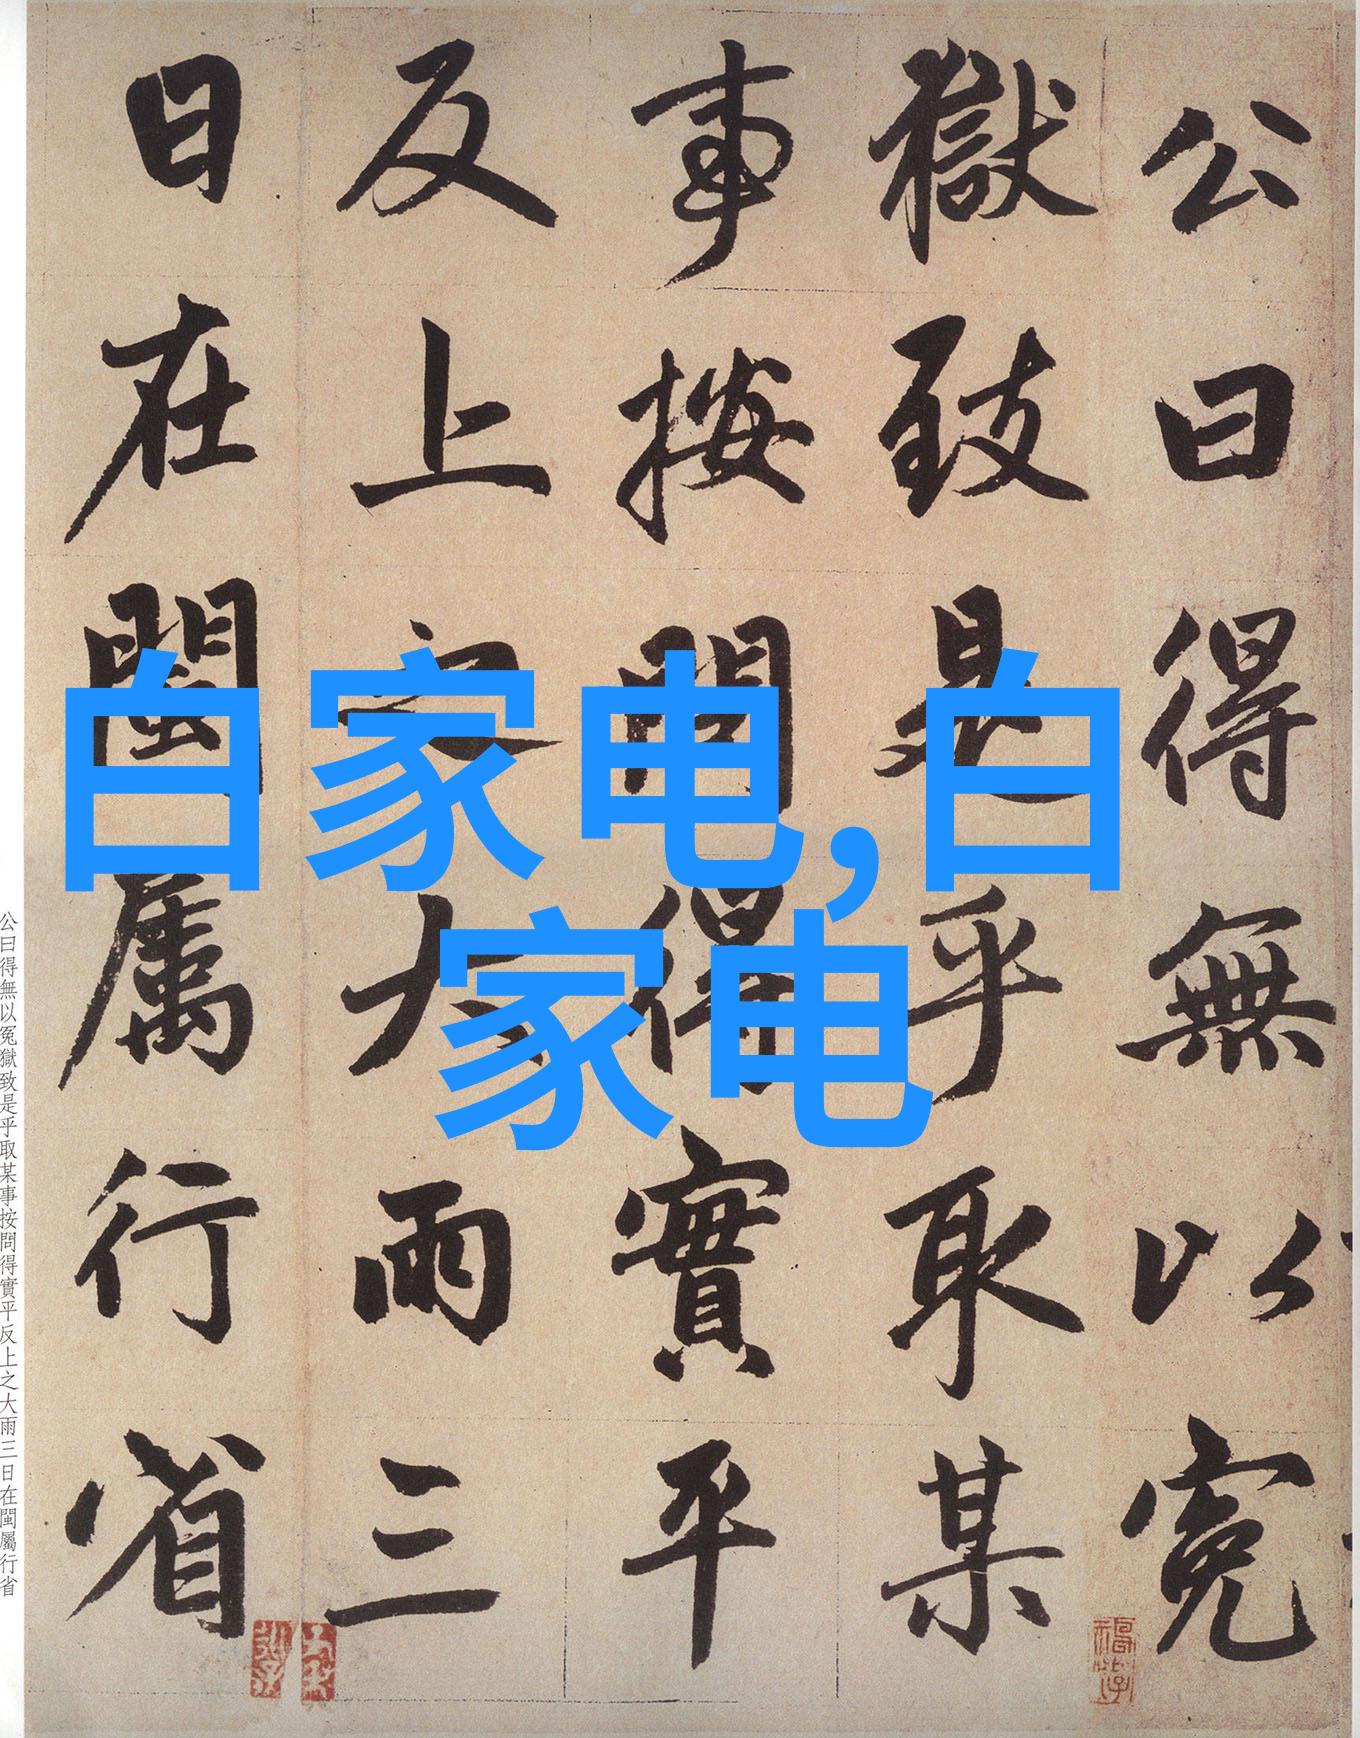 公曰得無以寃
獄致是乎取某
事按問得實平
反上之大雨三
日在閩屬行省
白家电,白
家电
公曰得無以冤獄致是乎取某事按問得實平反上之大雨三日在閩屬行省